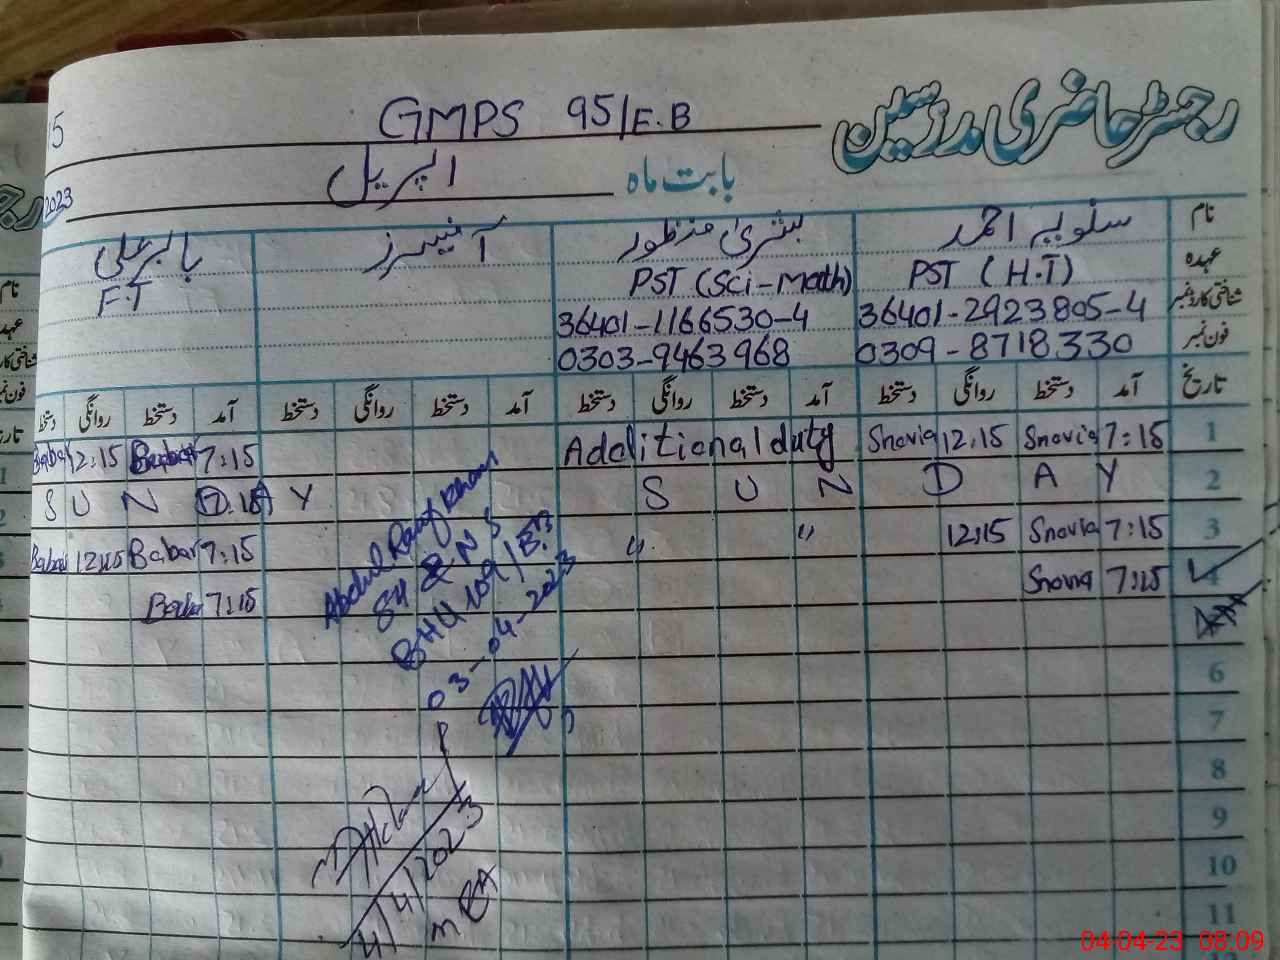 رجسٹر حاضری مدرسین
GMPS 95/E.B
15
بابت ماہ اپریل
2023
نام سلویہ احمد بشریٰ منظور آفیسرز بابر علی
عہدہ PST (H.T) PST (Sci-Math) F.T
شناختی کارڈ نمبر 36401-2923805-4 36401-1166530-4
فون نمبر 0309-8718330 0303-9463968
تاریخ آمد دستخط روانگی دستخط آمد دستخط روانگی دستخط آمد دستخط روانگی دستخط آمد دستخط روانگی دستخط
1 7:15 Snovia 12:15 Snovia Additional duty 7:15 Babar 12:15 Babar
2 SUNDAY SUNDAY
3 7:15 Snovia 12:15 " " 7:15 Babar 12:15 Babar
4 7:15 Snovia 7:15 Babar
6
7
8
9
10
11
Abdul Rauf Khan
SH & NS
BHU 109/E.B
03-04-2023
4/4/2023
04-04-23 08:09